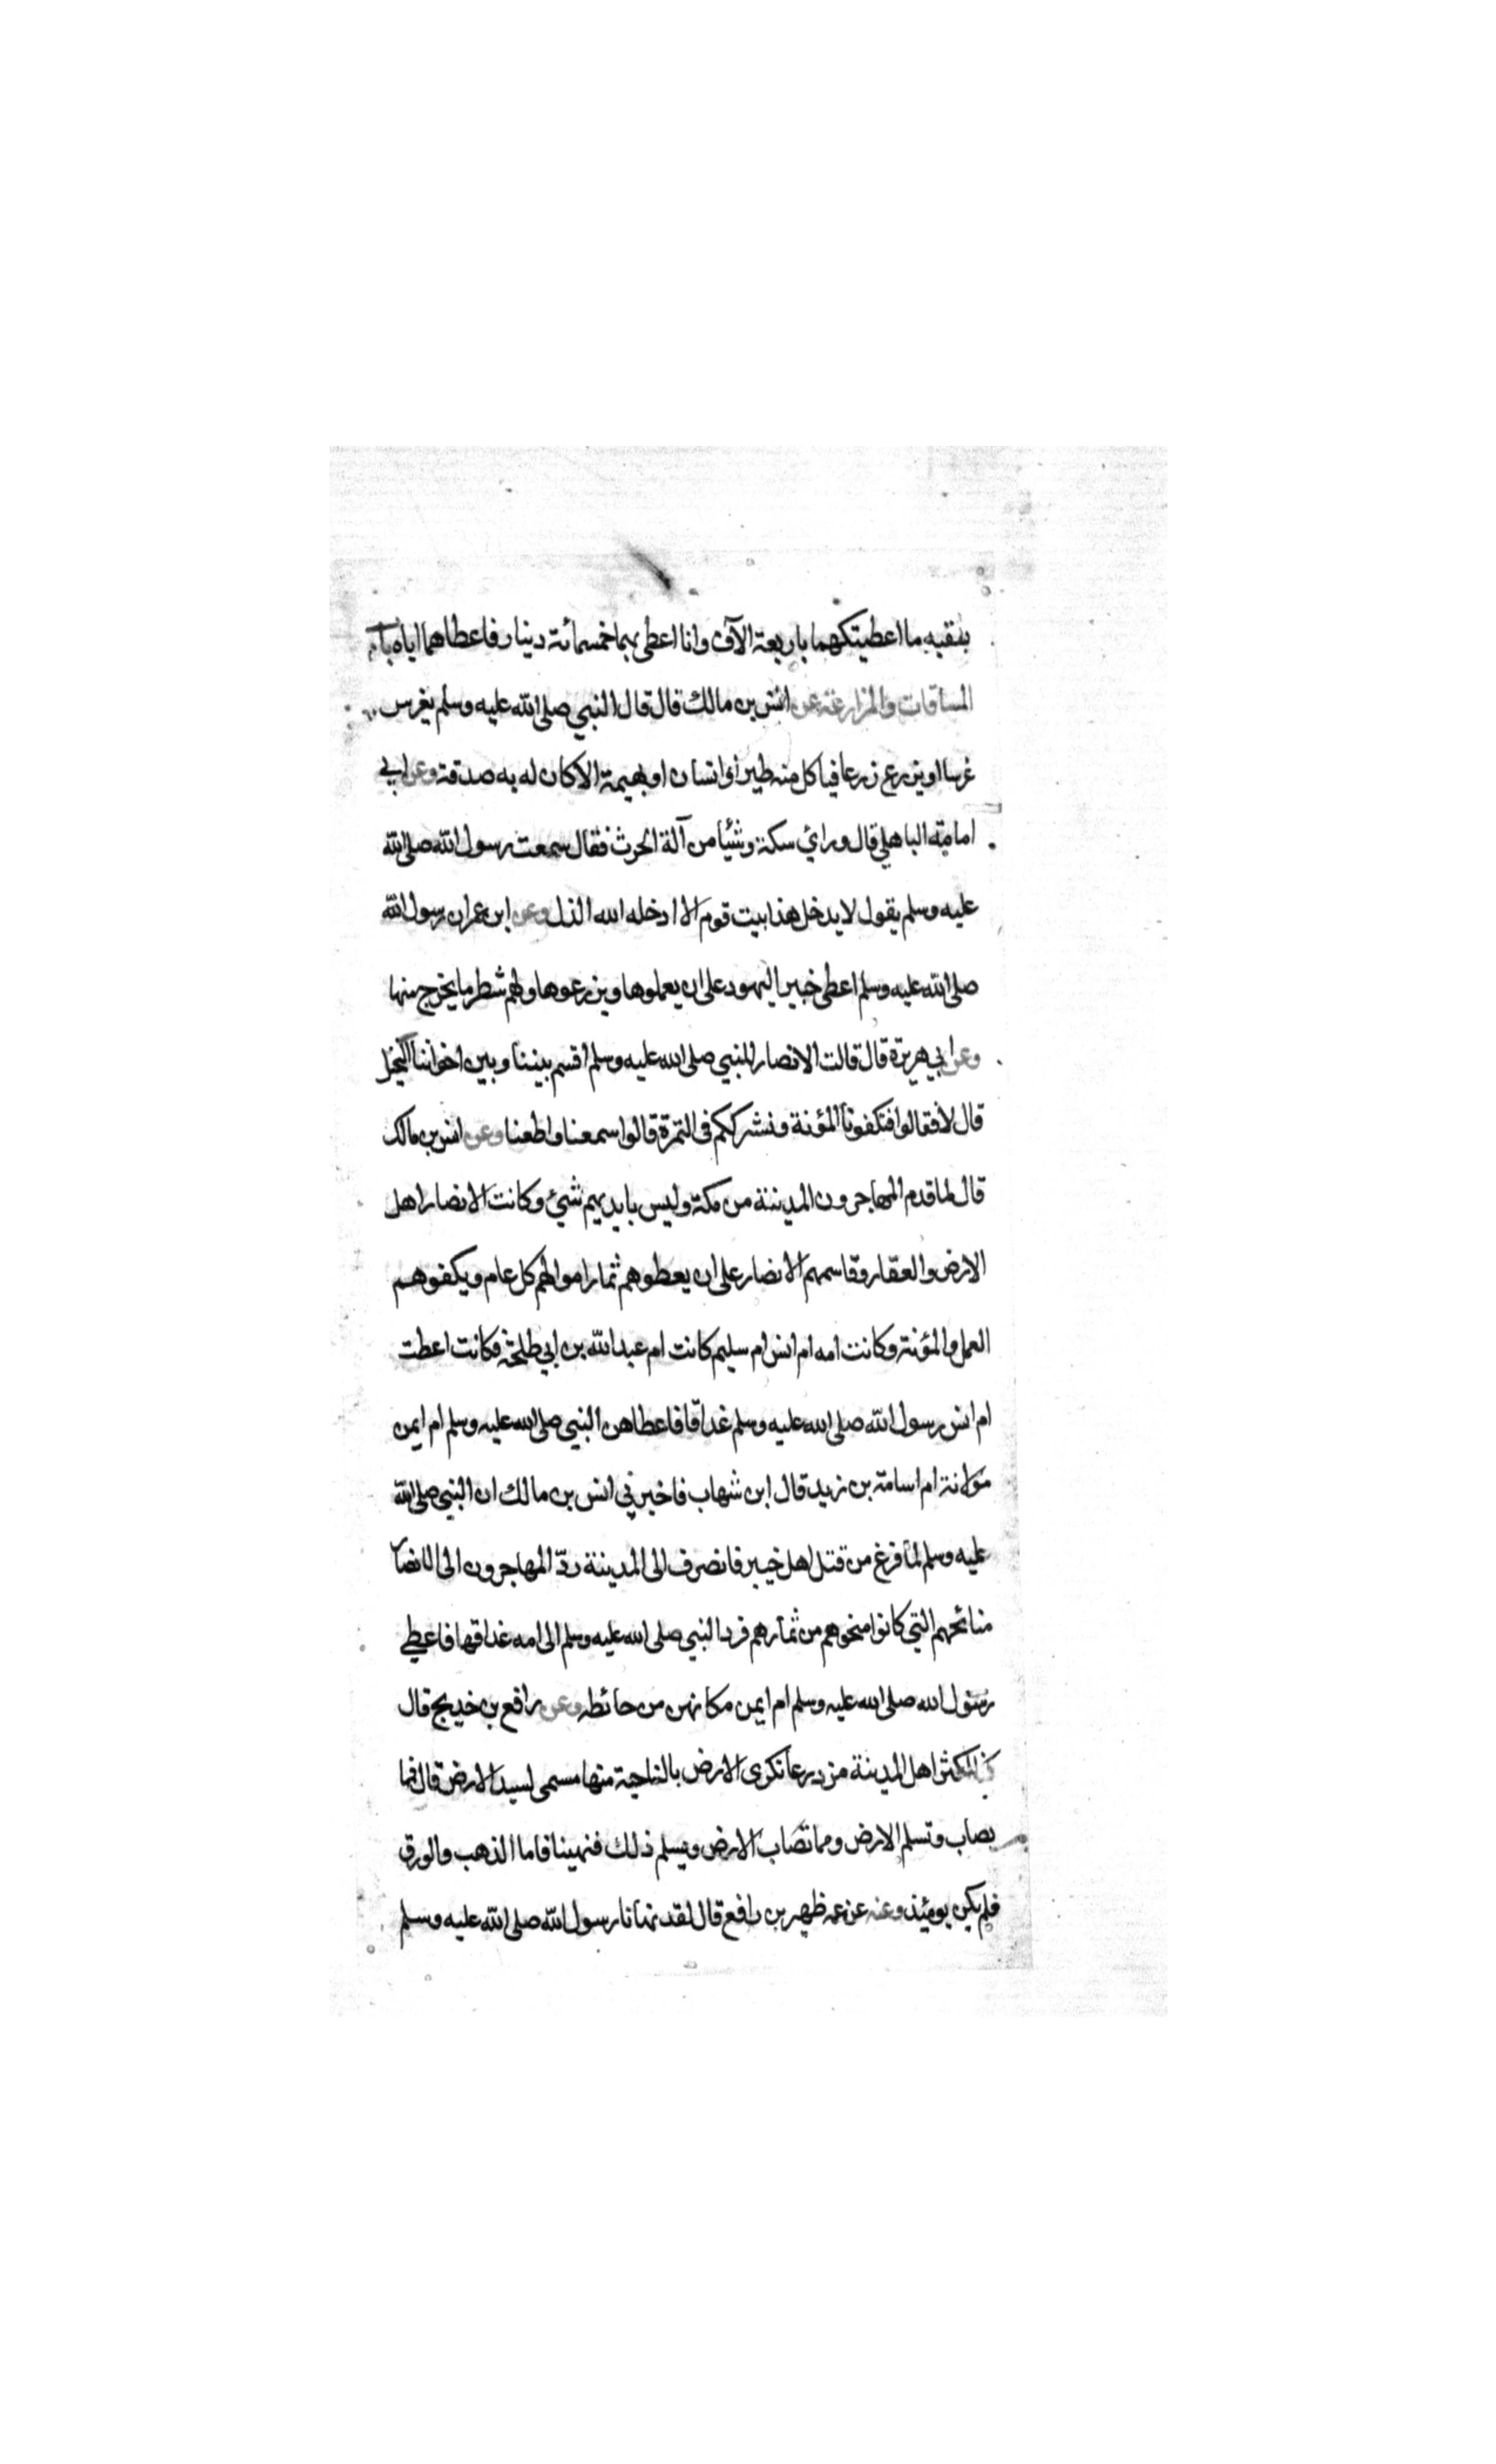 بنقبه ما اعطيتكهما باربعة الآف وانا اعطى بهما خمسمائة دينار فاعطاهما اياه باب
المساقات والمزارعة عن انس بن مالك قال قال النبي صلى الله عليه وسلم يغرس
غرسا او يزرع زرعا فياكل منه طير او انسان او بهيمة الا كان له به صدقة وعن ابي
امامة الباهلي قال وراي سكة وشيئا من آلة الحرث فقال سمعت رسول الله صلى الله
عليه وسلم يقول لا يدخل هذا بيت قوم الا ادخله الله الذل وعن ابن عمر ان رسول الله
صلى الله عليه وسلم اعطى خيبر اليهود على ان يعملوها ويزرعوها ولهم شطر ما يخرج منها
وعن ابي هريرة قال قالت الانصار للنبي صلى الله عليه وسلم اقسم بيننا وبين اخواننا النخل
قال لا فقالوا فتكفونا المؤنة ونشرككم في الثمرة قالوا سمعنا واطعنا وعن انس بن مالك
قال لما قدم المهاجرون المدينة من مكة وليس بايديهم شيئ وكانت الانصار اهل
الارض والعقار وقاسمهم الانصار على ان يعطوهم ثمار اموالهم كل عام ويكفوهم
العمل والمؤنة وكانت امه ام انس ام سليم كانت ام عبد الله بن ابي طلحة فكانت اعطت
ام انس رسول الله صلى الله عليه وسلم غداقا فاعطاهن النبي صلى الله عليه وسلم ام ايمن
مولاته ام اسامة بن زيد قال ابن شهاب فاخبرني انس بن مالك ان النبي صلى الله
عليه وسلم لما فرغ من قتل اهل خيبر فانصرف الى المدينة ردّ المهاجرون الى الانصار
منائحهم التي كانوا منحوهم من ثمارهم فرد النبي صلى الله عليه وسلم الى امه غداقها فاعطي
رسول الله صلى الله عليه وسلم ام ايمن مكانهن من حائطه وعن رافع بن خديج قال
كنا اكثر اهل المدينة مزدرعا نكرى الارض بالناحية منها مسمى لسيد الارض قال فمما
يصاب وتسلم الارض ومما تصاب الارض ويسلم ذلك فنهينا فاما الذهب والورق
فلم يكن يومئذ وعنه عن عمه ظهير بن رافع قال لقد نهانا رسول الله صلى الله عليه وسلم